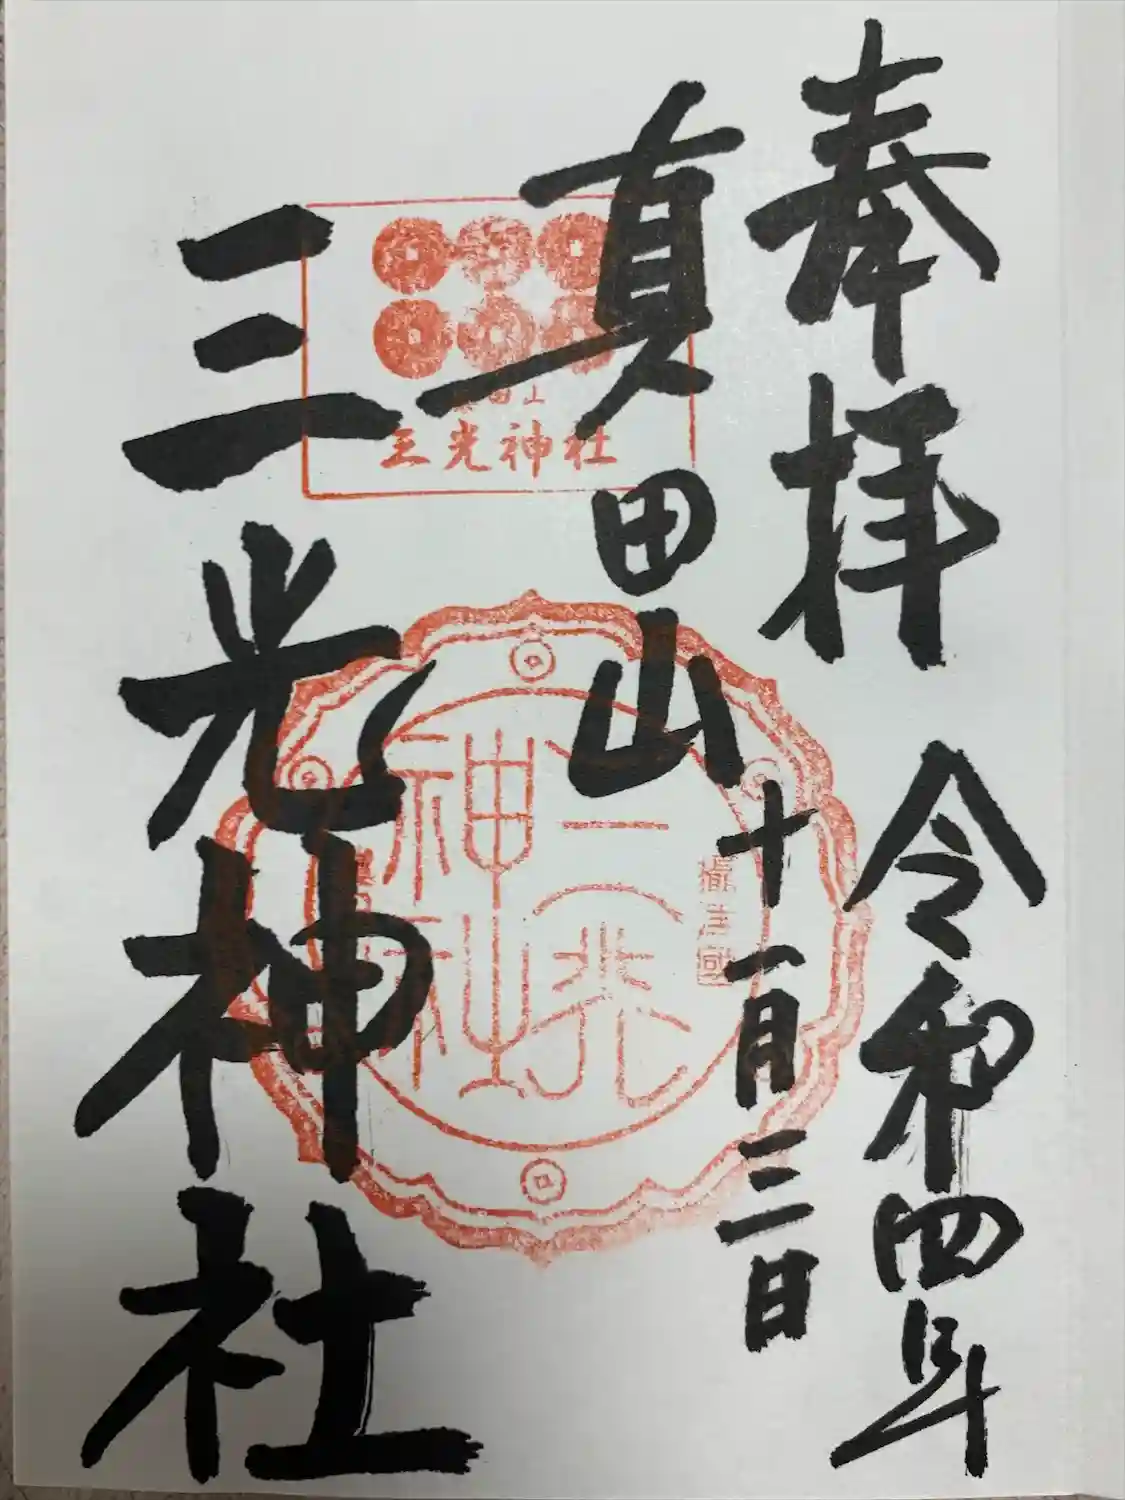 奉拝
令和四年
十一月三日
真田山
三光神社
真田山
三光神社
三光神社